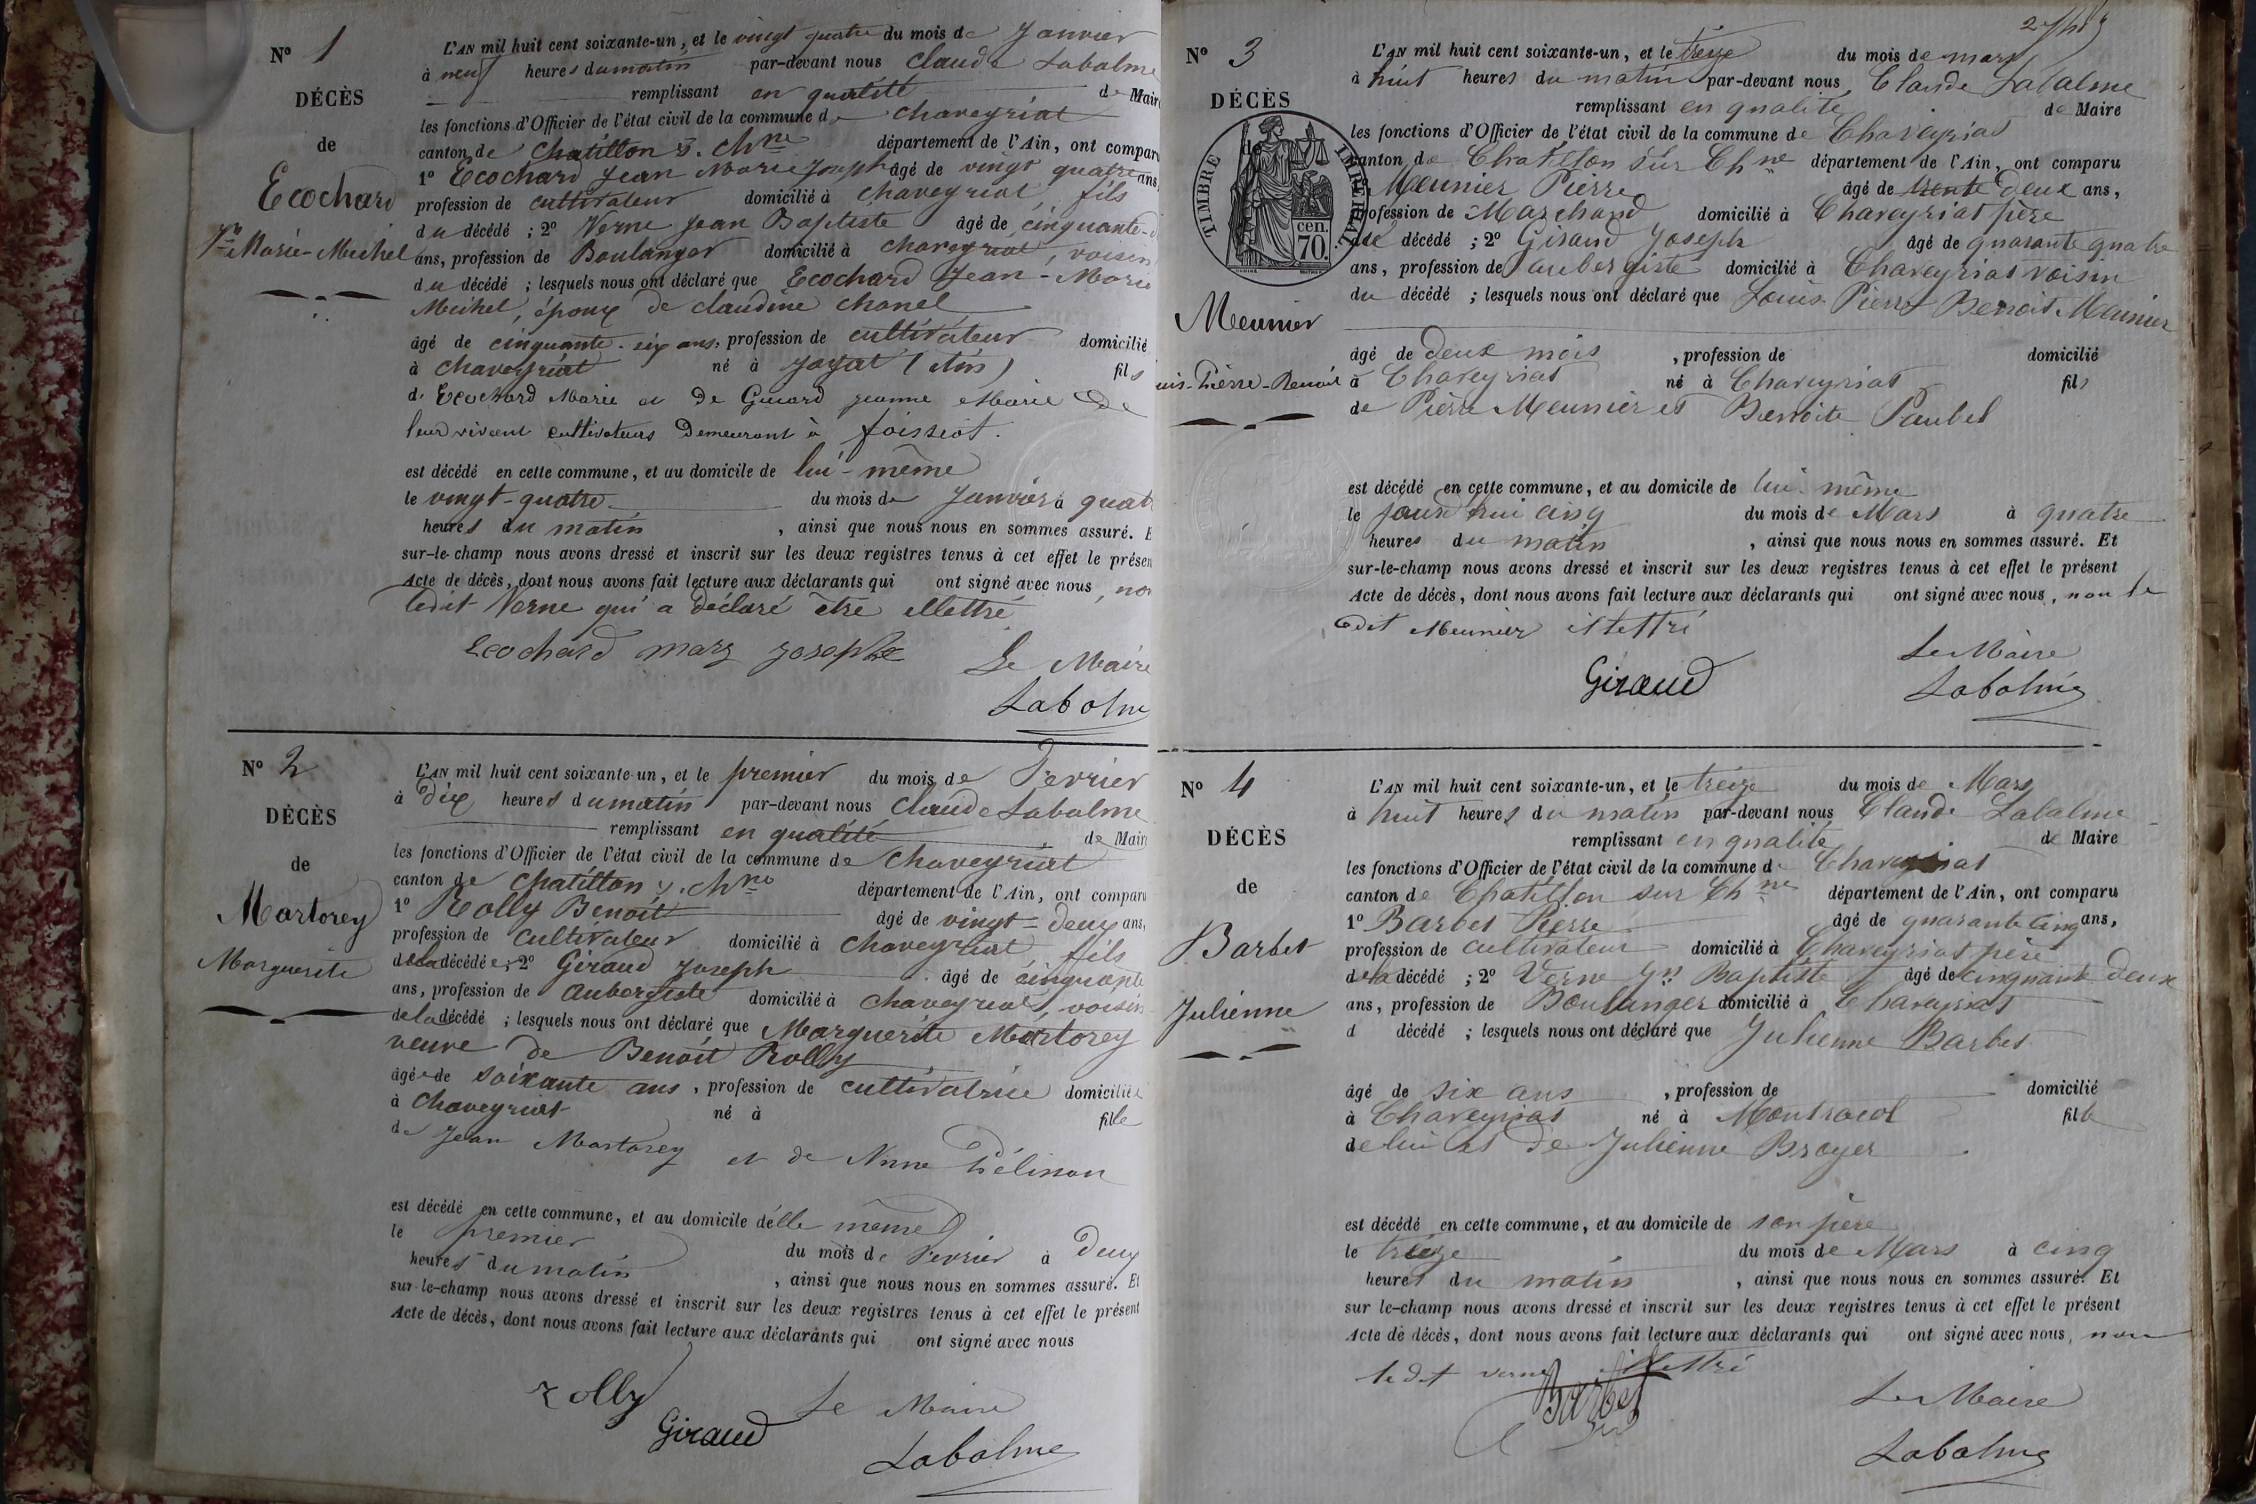 N° 1
DÉCÈS
de
Ecochard
Marie-Michel
L'AN mil huit cent soixante-un, et le vingt quatre du mois de Janvier
à neuf heures du matin par-devant nous Claude Labalme
remplissant en qualité de Mair
les fonctions d'Officier de l'état civil de la commune de Chaveyriat
canton de Chatillon s. Chne département de l'Ain, ont compar
1° Ecochard Jean Marie Joseph âgé de vingt quatre ans,
profession de cultivateur domicilié à Chaveyriat, fils
du décédé ; 2° Verne Jean Baptiste âgé de cinquante-
ans, profession de Boulanger domicilié à Chaveyriat, voisin
du décédé ; lesquels nous ont déclaré que Ecochard Jean-Marie
Michel, époux de Claudine Chanel
âgé de cinquante-six ans, profession de cultivateur domicilié
à Chaveyriat né à Jayat (Ain) fils
de Ecochard Marie et de Guiard Jeanne Marie de
leur vivant cultivateurs demeurant à foissiat.
est décédé en cette commune, et au domicile de lui-même
le vingt-quatre du mois de Janvier à quat
heures du matin, ainsi que nous nous en sommes assuré. E
sur-le-champ nous avons dressé et inscrit sur les deux registres tenus à cet effet le présen
Acte de décès, dont nous avons fait lecture aux déclarants qui ont signé avec nous, non
ledit Verne qui a déclaré être illettré
Ecochard marz joseph Le Maire
Labalme
N° 2
DÉCÈS
de
Mortorey
Marguerite
L'AN mil huit cent soixante-un, et le premier du mois de Fevrier
à Dix heures du matin par-devant nous Claude Labalme
remplissant en qualité de Mair
les fonctions d'Officier de l'état civil de la commune de Chaveyriat
canton de Chatillon s. Chne département de l'Ain, ont comparu
1° Rolly Benoit âgé de vingt-deux ans,
profession de cultivateur domicilié à Chaveyriat fils
de la décédée ; 2° Giraud Joseph âgé de cinquante
ans, profession de Aubergiste domicilié à Chaveyriat, voisin
de la décédé ; lesquels nous ont déclaré que Marguerite Mortorey
veuve de Benoit Rolly
âgée de soixante ans, profession de cultivatrice domiciliée
à Chaveyriat né à fille
de Jean Mortorey et de Anne Pélisson
est décédé en cette commune, et au domicile d'elle même
le premier du mois de Fevrier à Deux
heures du matin, ainsi que nous nous en sommes assuré. Et
sur-le-champ nous avons dressé et inscrit sur les deux registres tenus à cet effet le présent
Acte de décès, dont nous avons fait lecture aux déclarants qui ont signé avec nous
rolly Le Maire
Giraud Labalme
N° 3
DÉCÈS
de
TIMBRE IMPÉRIAL
70 cen.
Meunier
uis-Pierre-Benoit
L'AN mil huit cent soixante-un, et le treize du mois de mars
à huit heures du matin par-devant nous Claude Labalme
remplissant en qualité de Maire
les fonctions d'Officier de l'état civil de la commune de Chaveyriat
canton de Chatillon sur Chne département de l'Ain, ont comparu
Meunier Pierre âgé de trente deux ans,
profession de Marchand domicilié à Chaveyriat père
du décédé ; 2° Giraud Joseph âgé de quarante quatre
ans, profession de aubergiste domicilié à Chaveyriat voisin
du décédé ; lesquels nous ont déclaré que Louis Pierre Benoit Meunier
âgé de deux mois, profession de domicilié
à Chaveyriat né à Chaveyriat fils
de Pierre Meunier et Benoite Paubel
est décédé en cette commune, et au domicile de lui même
le jourd'hui cinq du mois de Mars à quatre
heures du matin, ainsi que nous nous en sommes assuré. Et
sur-le-champ nous avons dressé et inscrit sur les deux registres tenus à cet effet le présent
Acte de décès, dont nous avons fait lecture aux déclarants qui ont signé avec nous, non le
dit Meunier illettré
Le Maire
Giraud Labalme
N° 4
DÉCÈS
de
Barbet
Julienne
L'AN mil huit cent soixante-un, et le treize du mois de Mars
à huit heures du matin par-devant nous Claude Labalme
remplissant en qualité de Maire
les fonctions d'Officier de l'état civil de la commune de Chaveyriat
canton de Chatillon sur Chne département de l'Ain, ont comparu
1° Barbet Pierre âgé de quarante cinq ans,
profession de cultivateur domicilié à Chaveyriat père
de la décédé ; 2° Verne Jn Baptiste âgé de cinquante deux
ans, profession de Boulanger domicilié à Chaveyriat
d décédé ; lesquels nous ont déclaré que Julienne Barbet
âgé de six ans, profession de domicilié
à Chaveyriat né à Montracol fille
de lui et de Julienne Broyer
est décédé en cette commune, et au domicile de son père
le treize du mois de Mars à cinq
heures du matin, ainsi que nous nous en sommes assuré. Et
sur le-champ nous avons dressé et inscrit sur les deux registres tenus à cet effet le présent
Acte de décès, dont nous avons fait lecture aux déclarants qui ont signé avec nous, non
le dit verne illettré
Barbet Le Maire
Labalme